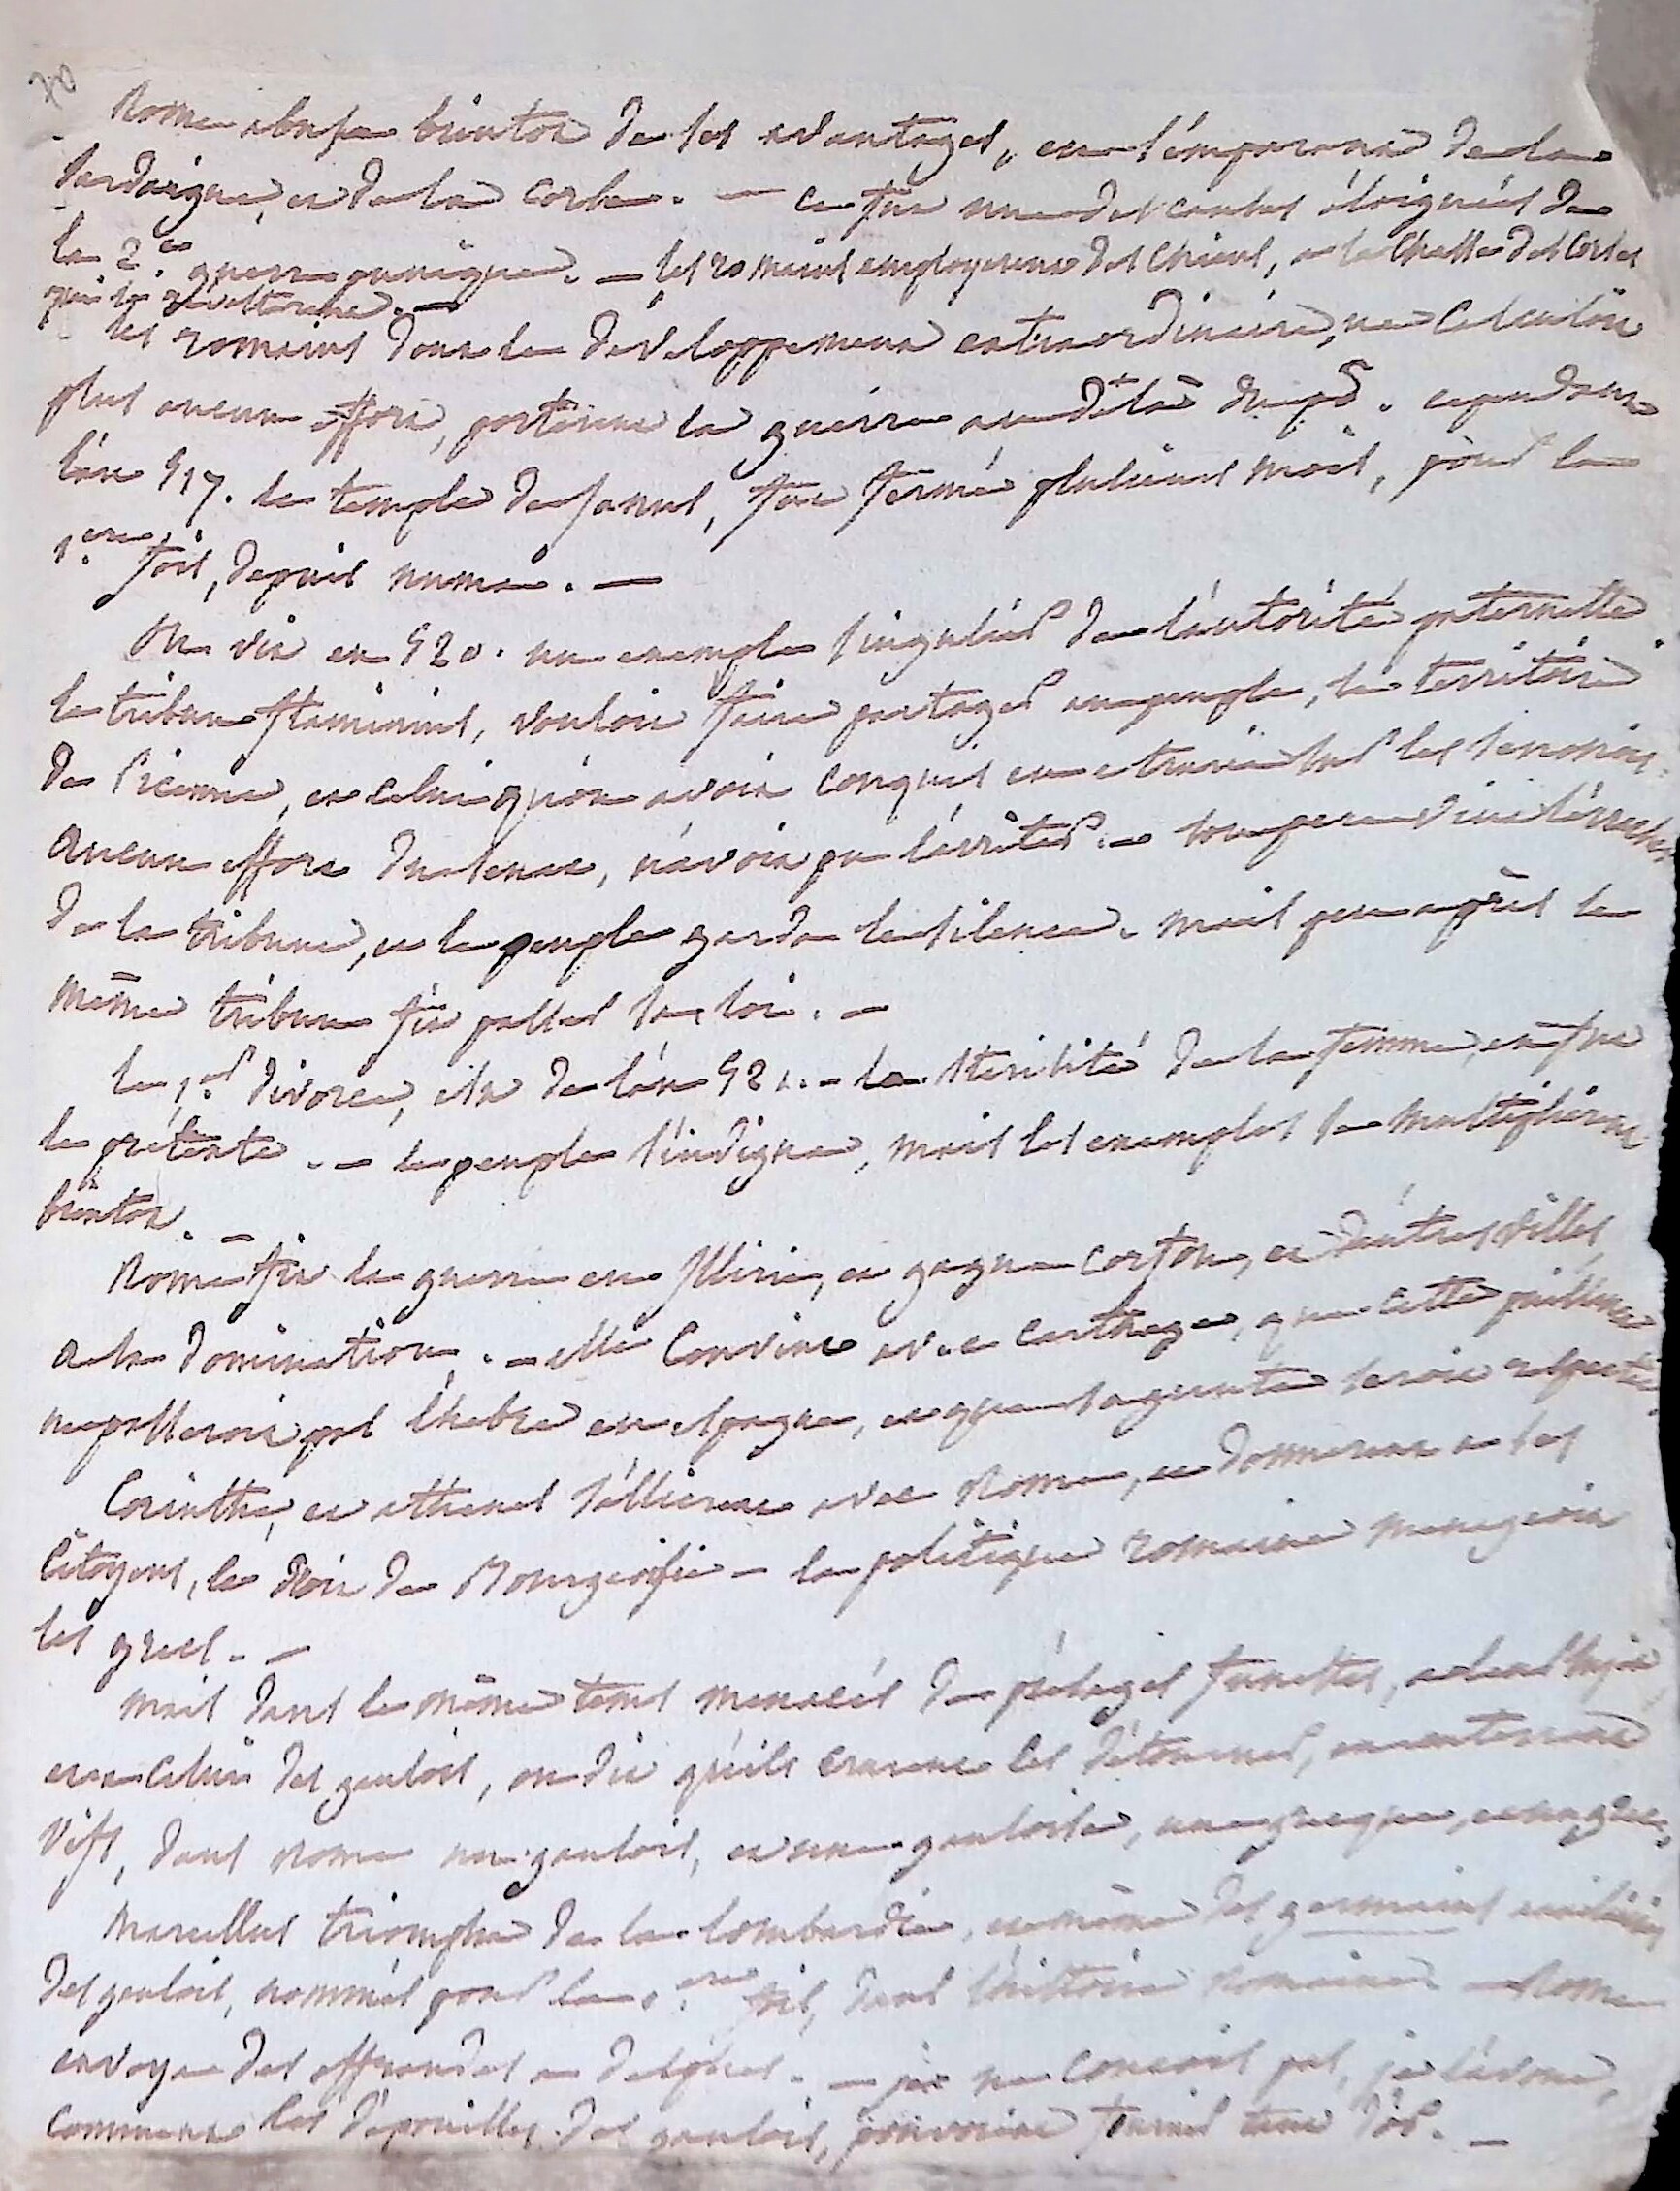 70
Rome abusa bientot de ses avantages, en s'emparant de la
Sardaigne, et de la Corse. — ce fut une des causes éloignées de
la 2.e guerre punique. — les romains employerent des chiens, a la chasse des Corses
qui se revolterent. —
les romains dont le développement extraordinaire, ne calculoit
plus aucun effort, porterent la guerre au delà du pô. cependant
l'an 517. le temple de Janus, fut fermé plusieurs mois, pour la
1.ere fois, depuis numa. —
On vit en 520. un exemple singulier de l'autorité paternelle.
le tribun flaminius, vouloit faire partager au peuple, le territoire
de Picenne, et celui qu'on avoit conquis sur les senonois.
aucun effort du senat, n'avoit pu l'arrêter. — son pere vint l'arracher
de la tribune, et le peuple garda le silence. mais peu après le
même tribun fit passer sa loi. —
le 1.er divorce, est de l'an 521. — la stérilité de la femme, en fut
le prétexte. — le peuple s'indigna, mais les exemples se multiplièrent
bientot. —
Rome fit la guerre en Illirie, et gagna Corfou, et d'autres villes,
a sa domination. — elle convint avec Carthage, que cette puissance
ne passeroit pas l'hebre en espagne, et que sagunte seroit respectée.
Corinthe, et athenes s'allierent avec Rome, et donnerent a ses
Citoyens, le droit de Bourgeoisie — la politique romaine menageoit
les grecs. —
mais dans le même tems menacés de présages funestes, a leur sujet
et a celui des gaulois, on dit qu'ils crurent les détourner, en enterrant
vifs, dans Rome un gaulois, et une gauloise, une grecque, et un grec.
Marcellus triompha de la lombardie, et même des germains auxiliaires
des gaulois, nommés pour la 1.ere fois, dans l'histoire Romaine — Rome
envoya des offrandes a Delphes. — je ne conçois pas, je l'avoue,
comment les dépouilles des gaulois, pouvoient fournir tant d'or. —